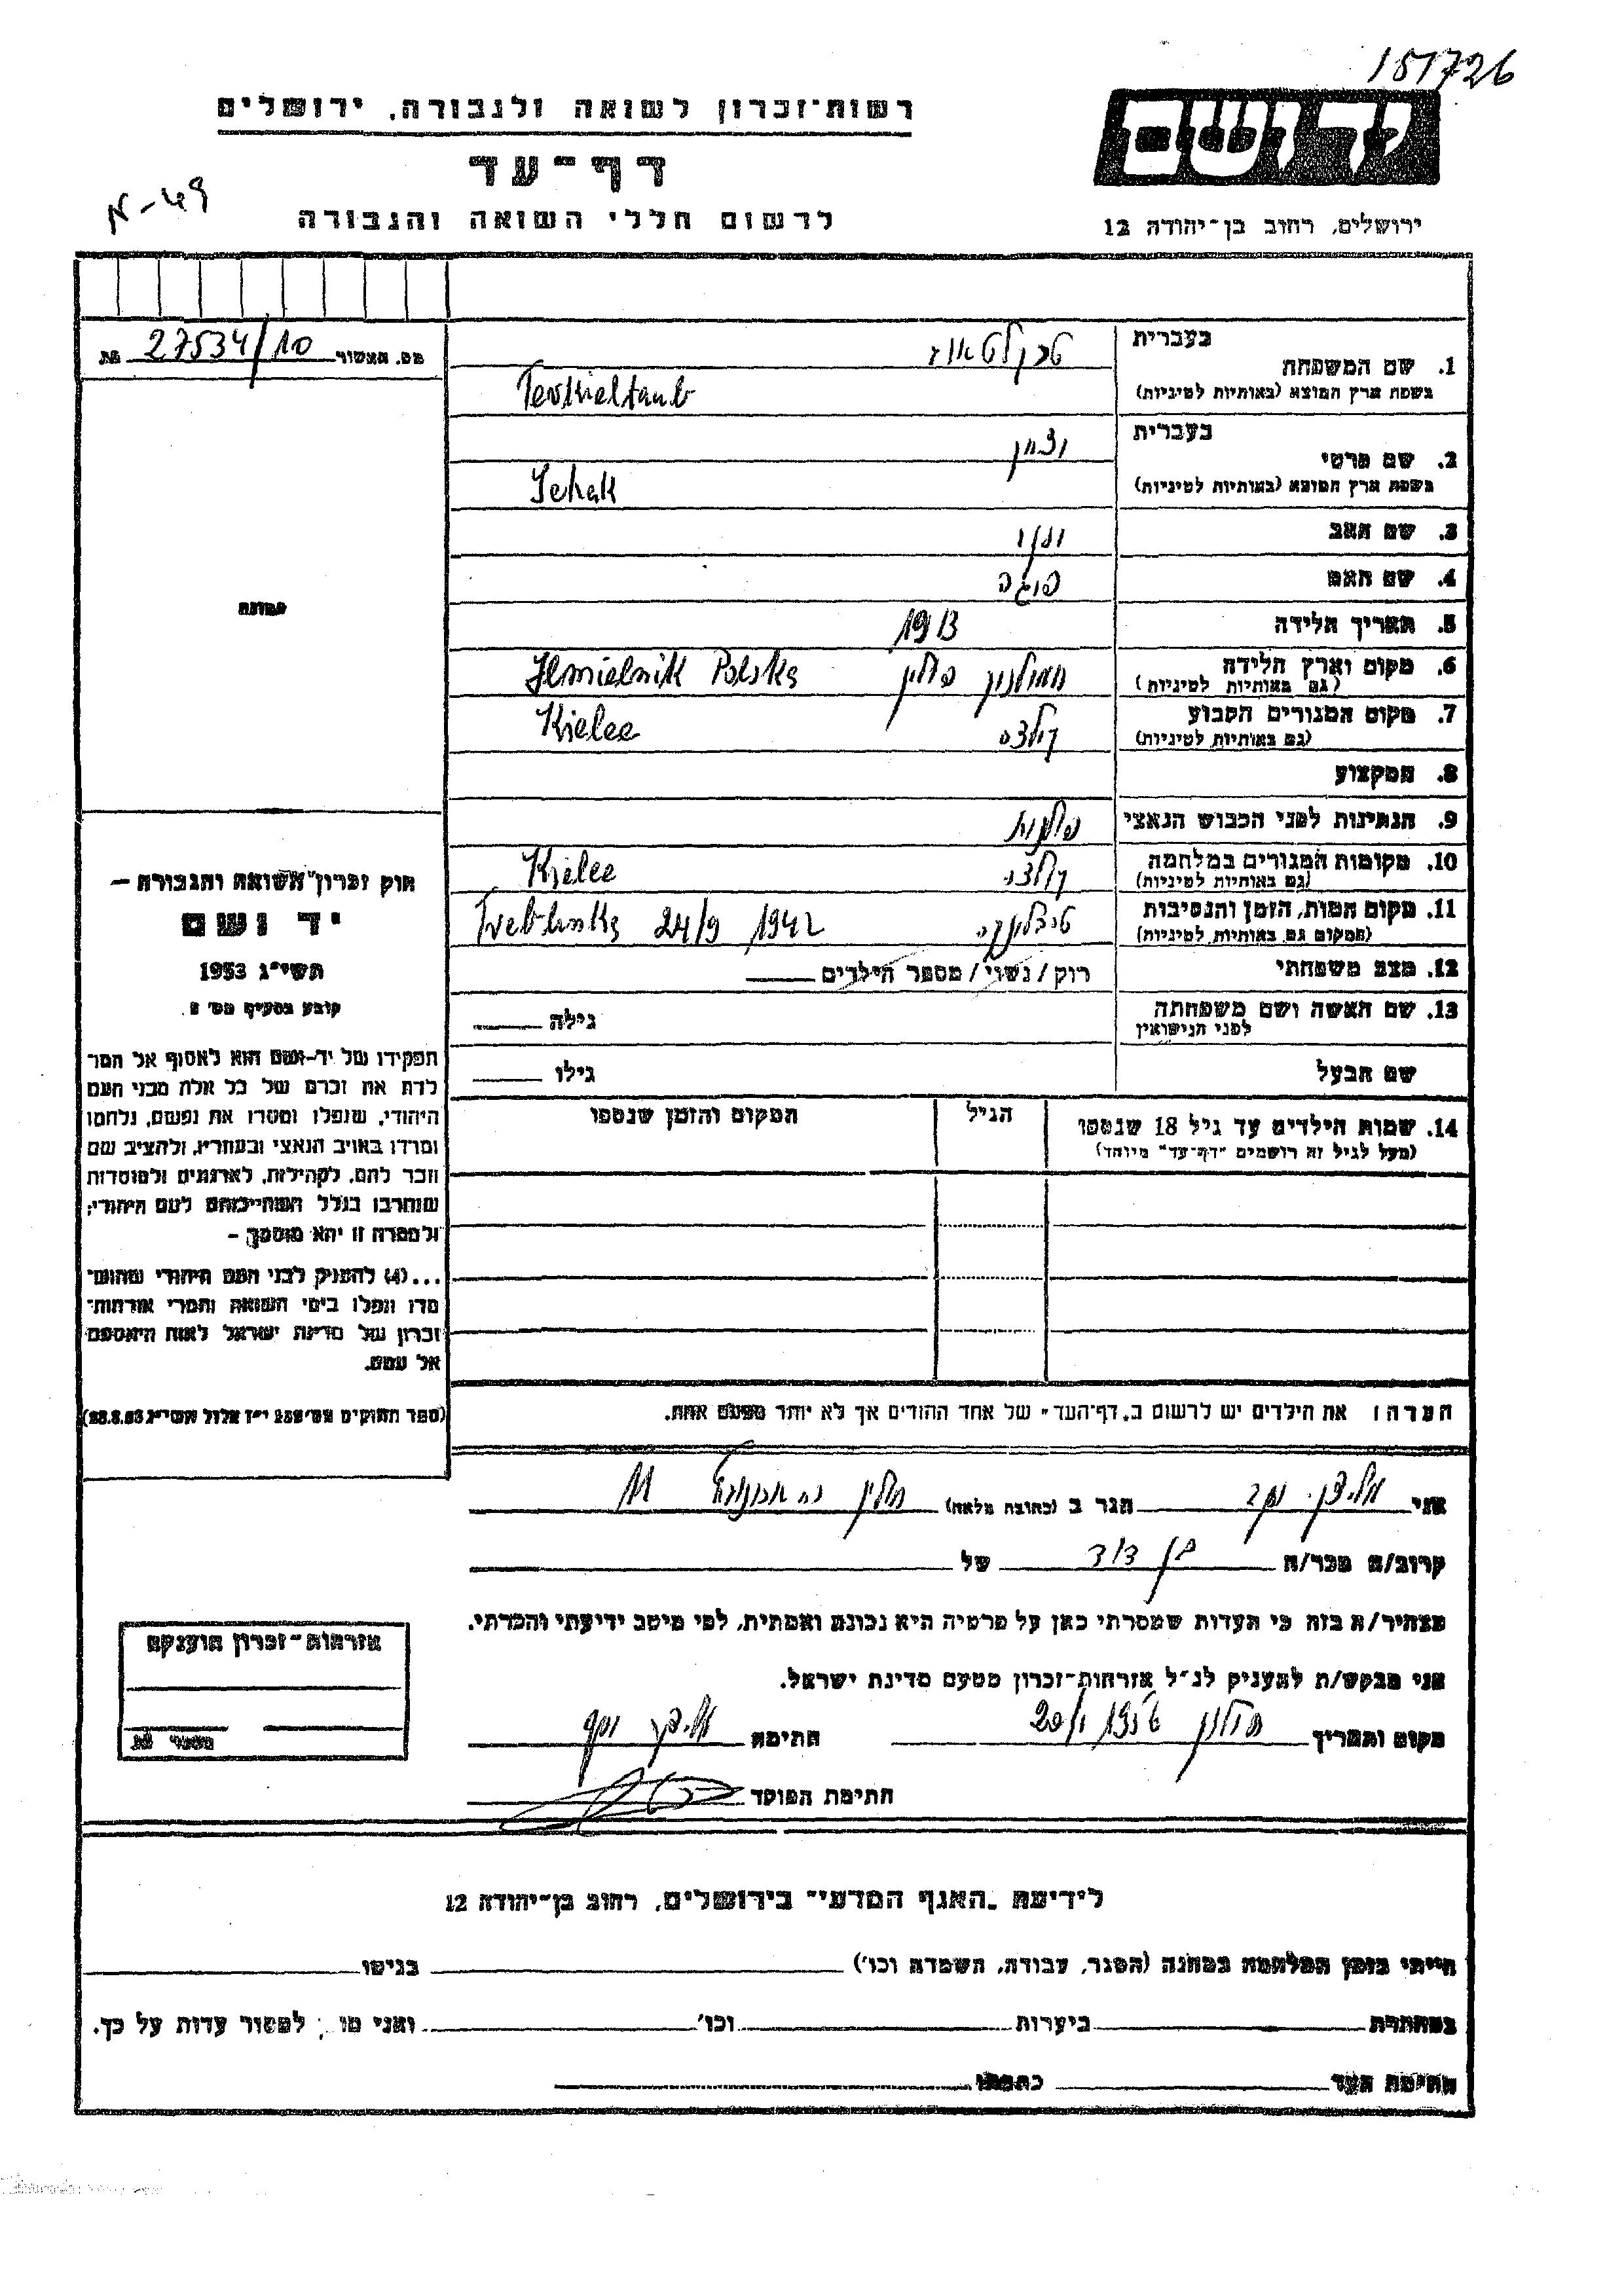 151726
יד ושם
רשות-זכרון לשואה ולגבורה, ירושלים
דף-עד
לרשום חללי השואה והגבורה
ירושלים, רחוב בן-יהודה 12
מס. האשור 27534/10
בעברית
1. שם המשפחה
בשפת ארץ המוצא (באותיות לטיניות)
בעברית
2. שם פרטי יצחק
בשפת ארץ המוצא (באותיות לטיניות)
3. שם האב
4. שם האם
5. תאריך הלידה 1913
6. מקום וארץ הלידה פולין Polska
(גם באותיות לטיניות)
7. מקום המגורים הקבוע קילצה Kielce
(גם באותיות לטיניות)
8. המקצוע
9. הנתינות לפני הכבוש הנאצי פולנית
10. מקומות המגורים במלחמה קילצה Kielce
(גם באותיות לטיניות)
11. מקום המות, הזמן והנסיבות טרבלינקה Treblinka 24/9 1942
(המקום גם באותיות לטיניות)
12. מצב משפחתי רוק / נשוי / מספר הילדים
13. שם האשה ושם משפחתה גילה
לפני הנישואין
שם הבעל גילו
14. שמות הילדים עד גיל 18 שנספו הגיל המקום והזמן שנספו
(מעל לגיל זה רושמים "דף-עד" מיוחד)
תמונה
חוק זכרון השואה והגבורה –
יד ושם
תשי"ג 1953
קובע בסעיף מס' 2
תפקידו של יד-ושם הוא לאסוף אל המו־
לדת את זכרם של כל אלה מבני העם
היהודי, שנפלו ומסרו את נפשם, נלחמו
ומרדו באויב הנאצי ובעוזריו, ולהציב שם
וזכר להם, לקהילות, לארגונים ולמוסדות
שנחרבו בגלל השתייכותם לעם היהודי;
ולמטרה זו יהא מוסמך –
...(4) להעניק לבני העם היהודי שהוש־
מדו ונפלו בימי השואה והמרי אזרחות־
זכרון של מדינת ישראל לאות היאספם
אל עמם.
(ספר החוקים מס' 132 י"ז אלול תשי"ג 28.8.53)
הערה: את הילדים יש לרשום ב"דף-העד" של אחד ההורים אך לא יותר מפעם אחת.
אני הגר ב (כתובת מלאה) חולון 11
קרוב/ה מכר/ה בן דוד של
מצהיר/ה בזה כי העדות שמסרתי כאן על פרטיה היא נכונה ואמתית, לפי מיטב ידיעתי והכרתי.
אני מבקש/ת להעניק לנ"ל אזרחות-זכרון מטעם מדינת ישראל.
מקום ותאריך חולון חתימה
חתימת הפוקד
אזרחות-זכרון הוענקה
מספר
לידיעת "האגף המדעי" בירושלים, רחוב בן-יהודה 12
הייתי בזמן המלחמה במחנה (הסגר, עבודה, השמדה וכו') בגיטו
במחתרת ביערות וכו' ואני מו ; למסור עדות על כך.
חתימת העד כתבתו